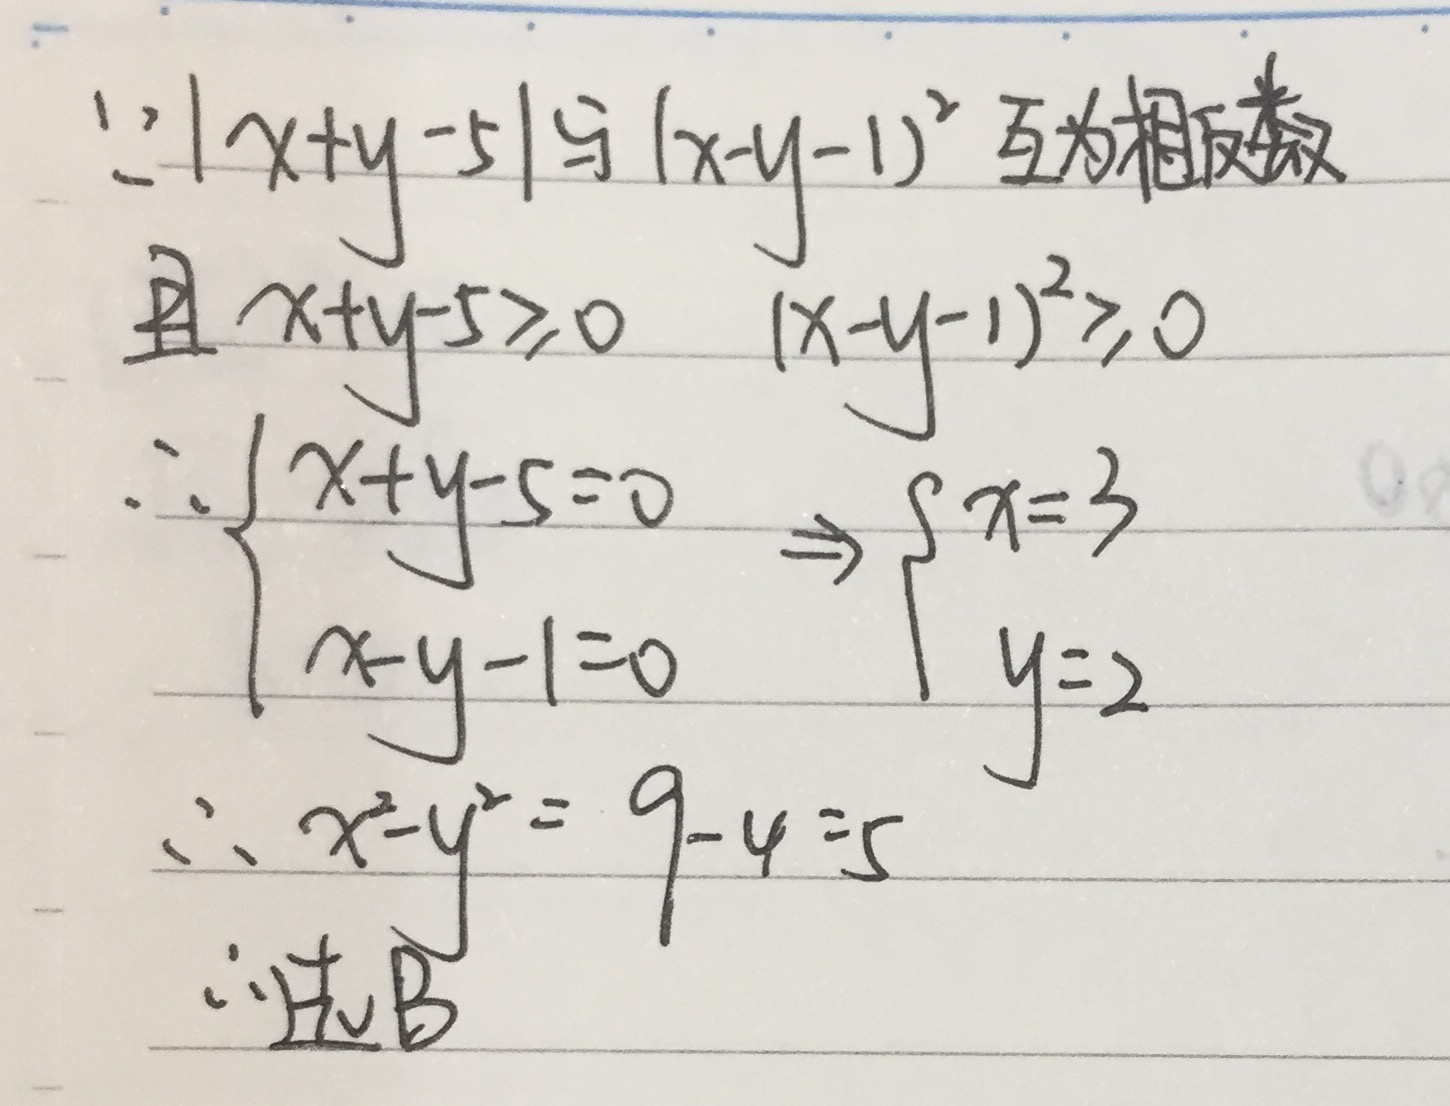 ∵|x+y-5|与(x-y-1)²互为相反数
且 x+y-5≥0 (x-y-1)²≥0
∴{x+y-5=0 ⇒ {x=3
x-y-1=0 y=2
∴ x²-y² = 9-4=5
∴选B